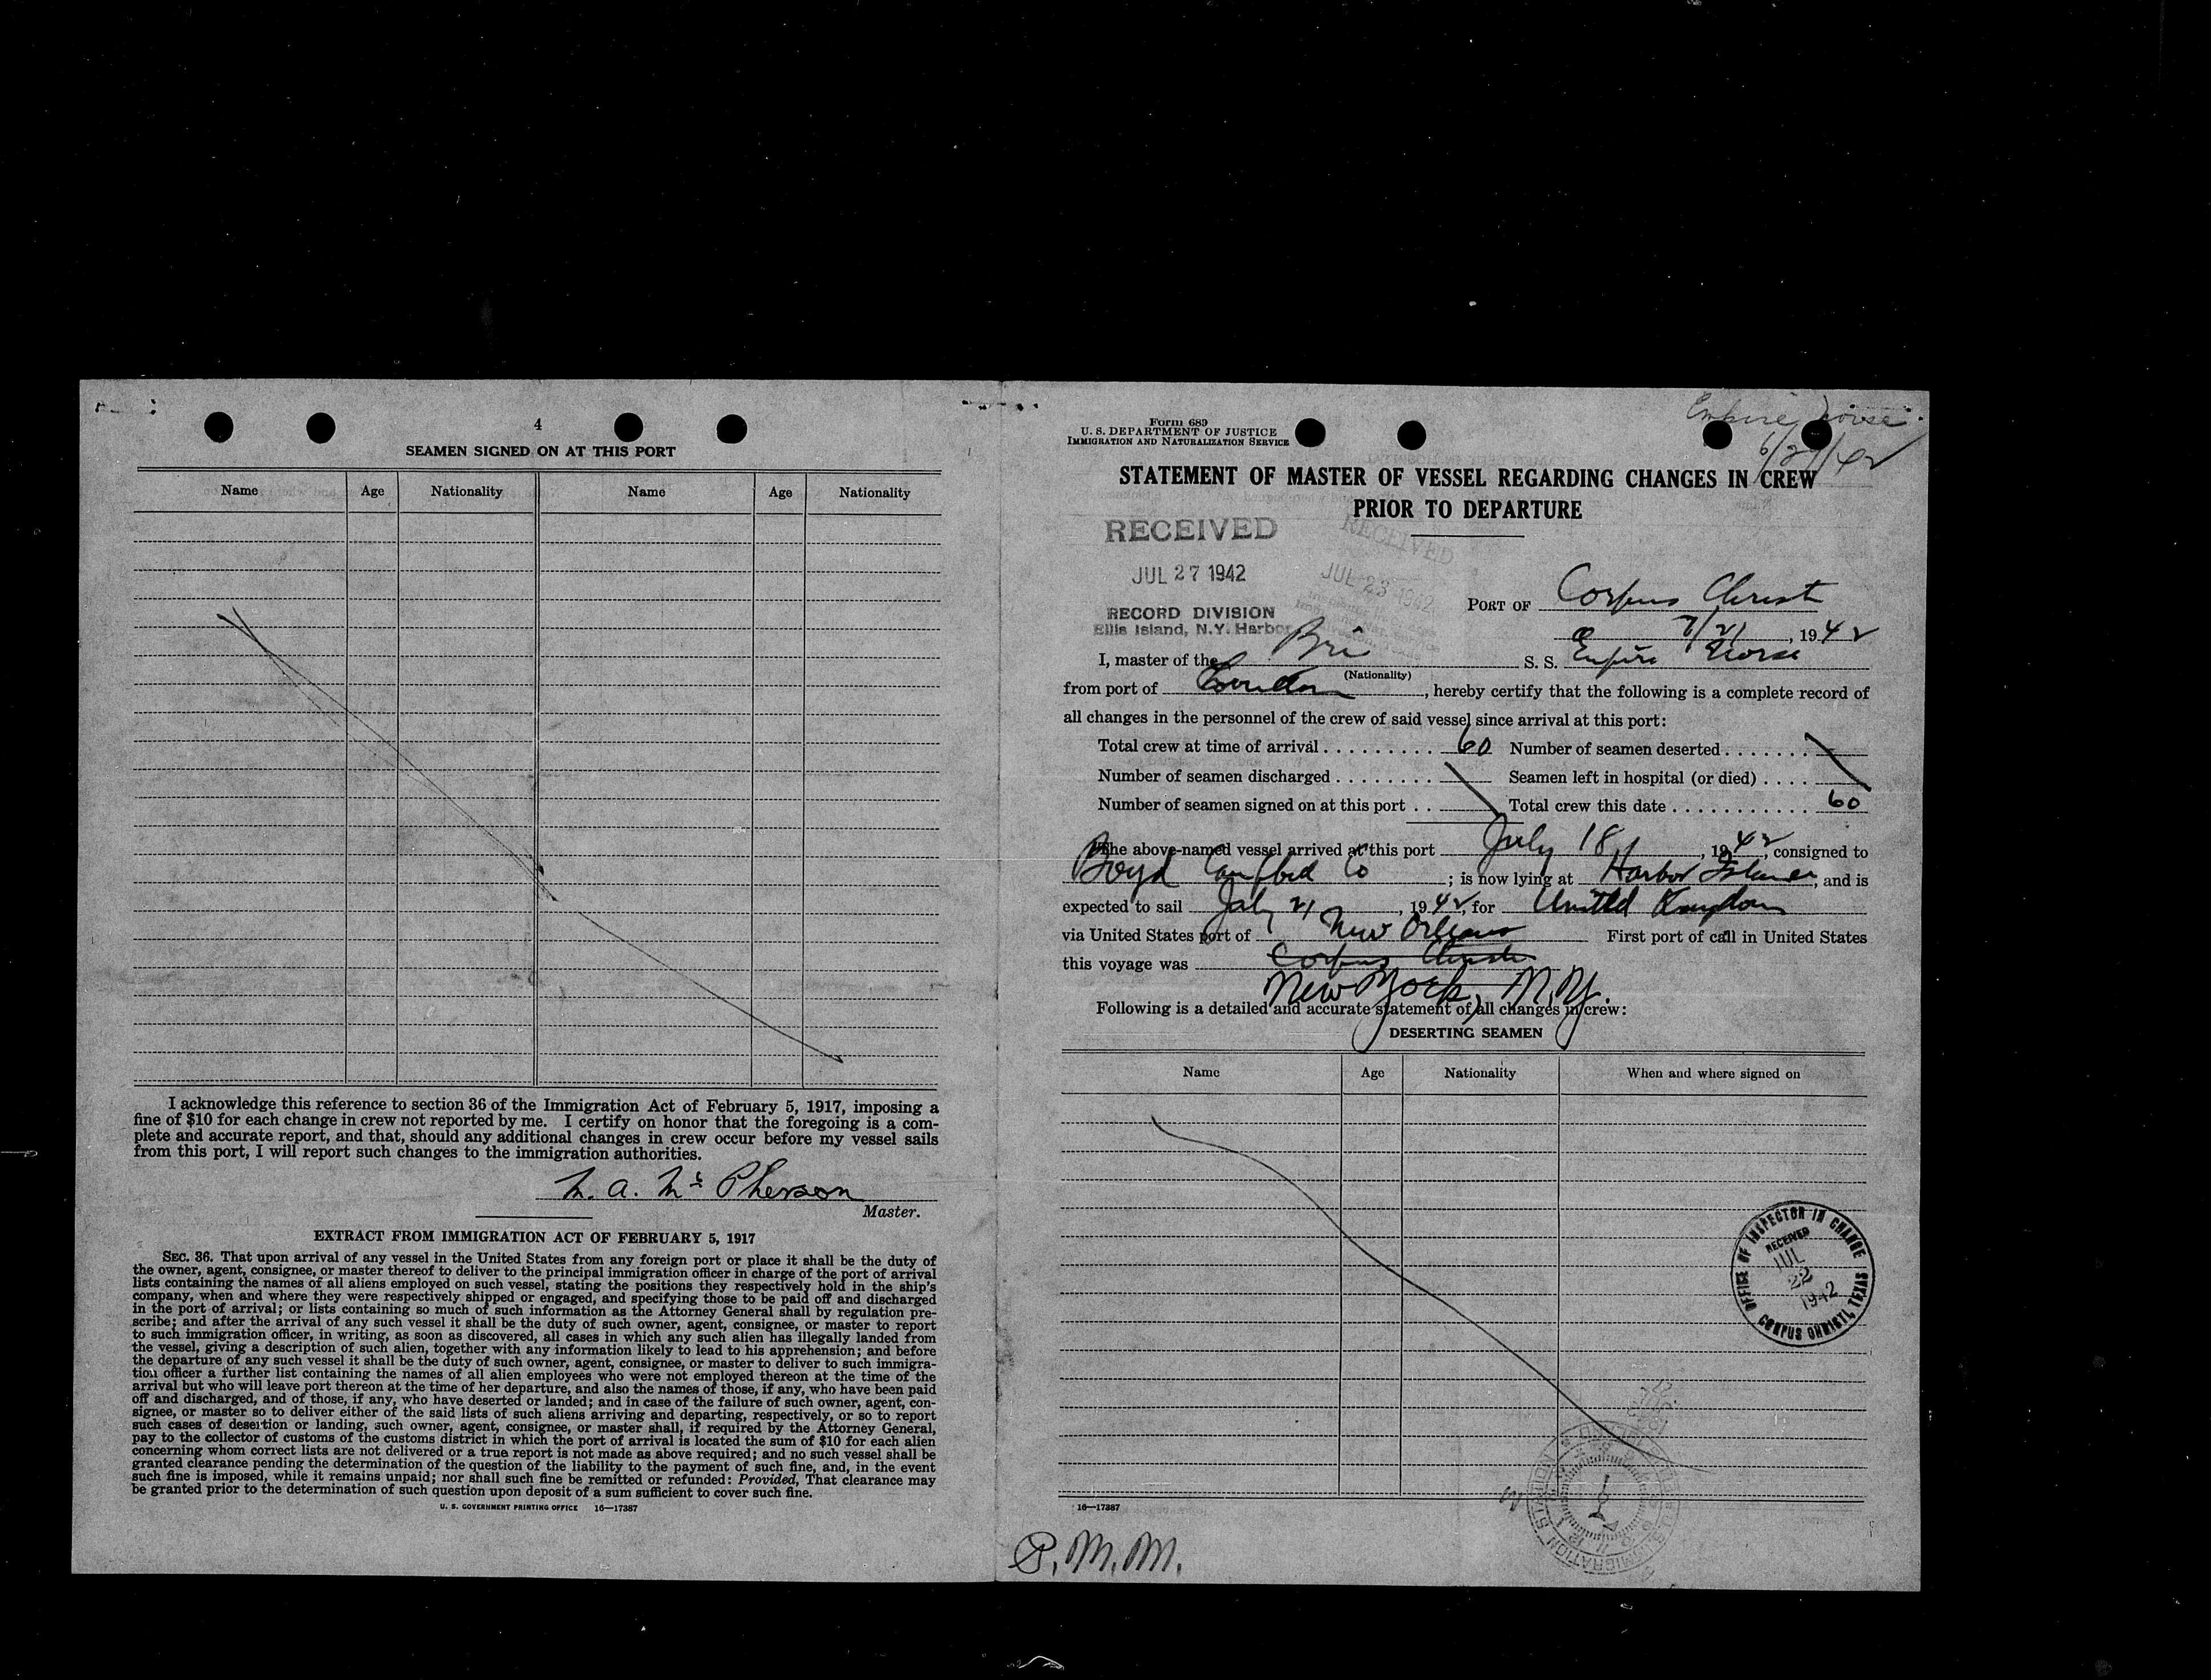 4
SEAMEN SIGNED ON AT THIS PORT
Name Age Nationality Name Age Nationality
I acknowledge this reference to section 36 of the Immigration Act of February 5, 1917, imposing a
fine of $10 for each change in crew not reported by me. I certify on honor that the foregoing is a com-
plete and accurate report, and that, should any additional changes in crew occur before my vessel sails
from this port, I will report such changes to the immigration authorities.
Mc Pherson
Master.
EXTRACT FROM IMMIGRATION ACT OF FEBRUARY 5, 1917
SEC. 36. That upon arrival of any vessel in the United States from any foreign port or place it shall be the duty of
the owner, agent, consignee, or master thereof to deliver to the principal immigration officer in charge of the port of arrival
lists containing the names of all aliens employed on such vessel, stating the positions they respectively hold in the ship's
company, when and where they were respectively shipped or engaged, and specifying those to be paid off and discharged
in the port of arrival; or lists containing so much of such information as the Attorney General shall by regulation pre-
scribe; and after the arrival of any such vessel it shall be the duty of such owner, agent, consignee, or master to report
to such immigration officer, in writing, as soon as discovered, all cases in which any such alien has illegally landed from
the vessel, giving a description of such alien, together with any information likely to lead to his apprehension; and before
the departure of any such vessel it shall be the duty of such owner, agent, consignee, or master to deliver to such immigra-
tion officer a further list containing the names of all alien employees who were not employed thereon at the time of the
arrival but who will leave port thereon at the time of her departure, and also the names of those, if any, who have been paid
off and discharged, and of those, if any, who have deserted or landed; and in case of the failure of such owner, agent, con-
signee, or master so to deliver either of the said lists of such aliens arriving and departing, respectively, or so to report
such cases of desertion or landing, such owner, agent, consignee, or master shall, if required by the Attorney General,
pay to the collector of customs of the customs district in which the port of arrival is located the sum of $10 for each alien
concerning whom correct lists are not delivered or a true report is not made as above required; and no such vessel shall be
granted clearance pending the determination of the question of the liability to the payment of such fine, and, in the event
such fine is imposed, while it remains unpaid; nor shall such fine be remitted or refunded: Provided, That clearance may
be granted prior to the determination of such question upon deposit of a sum sufficient to cover such fine.
U. S. GOVERNMENT PRINTING OFFICE 16—17387
Form 689
U. S. DEPARTMENT OF JUSTICE
IMMIGRATION AND NATURALIZATION SERVICE
Empire
STATEMENT OF MASTER OF VESSEL REGARDING CHANGES IN CREW
PRIOR TO DEPARTURE
RECEIVED
JUL 27 1942
RECORD DIVISION
Ellis Island, N.Y. Harbor
RECEIVED
JUL 23 1942
PORT OF Corpus Christi
7/21, 1942
I, master of the Bri S. S. Empire Norse
(Nationality)
from port of London, hereby certify that the following is a complete record of
all changes in the personnel of the crew of said vessel since arrival at this port:
Total crew at time of arrival 60 Number of seamen deserted
Number of seamen discharged Seamen left in hospital (or died)
Number of seamen signed on at this port Total crew this date 60
The above-named vessel arrived at this port July 18, 1942, consigned to
Boyd Campbell Co; is now lying at Harbor Island, and is
expected to sail July 21, 1942, for United Kingdom
via United States port of New Orleans First port of call in United States
this voyage was Corpus Christi
New York, N.Y.
Following is a detailed and accurate statement of all changes in crew:
DESERTING SEAMEN
Name Age Nationality When and where signed on
OFFICE OF INSPECTOR IN CHARGE
RECEIVED
JUL
22
1942
CORPUS CHRISTI, TEXAS
16—17387
P.M.M.